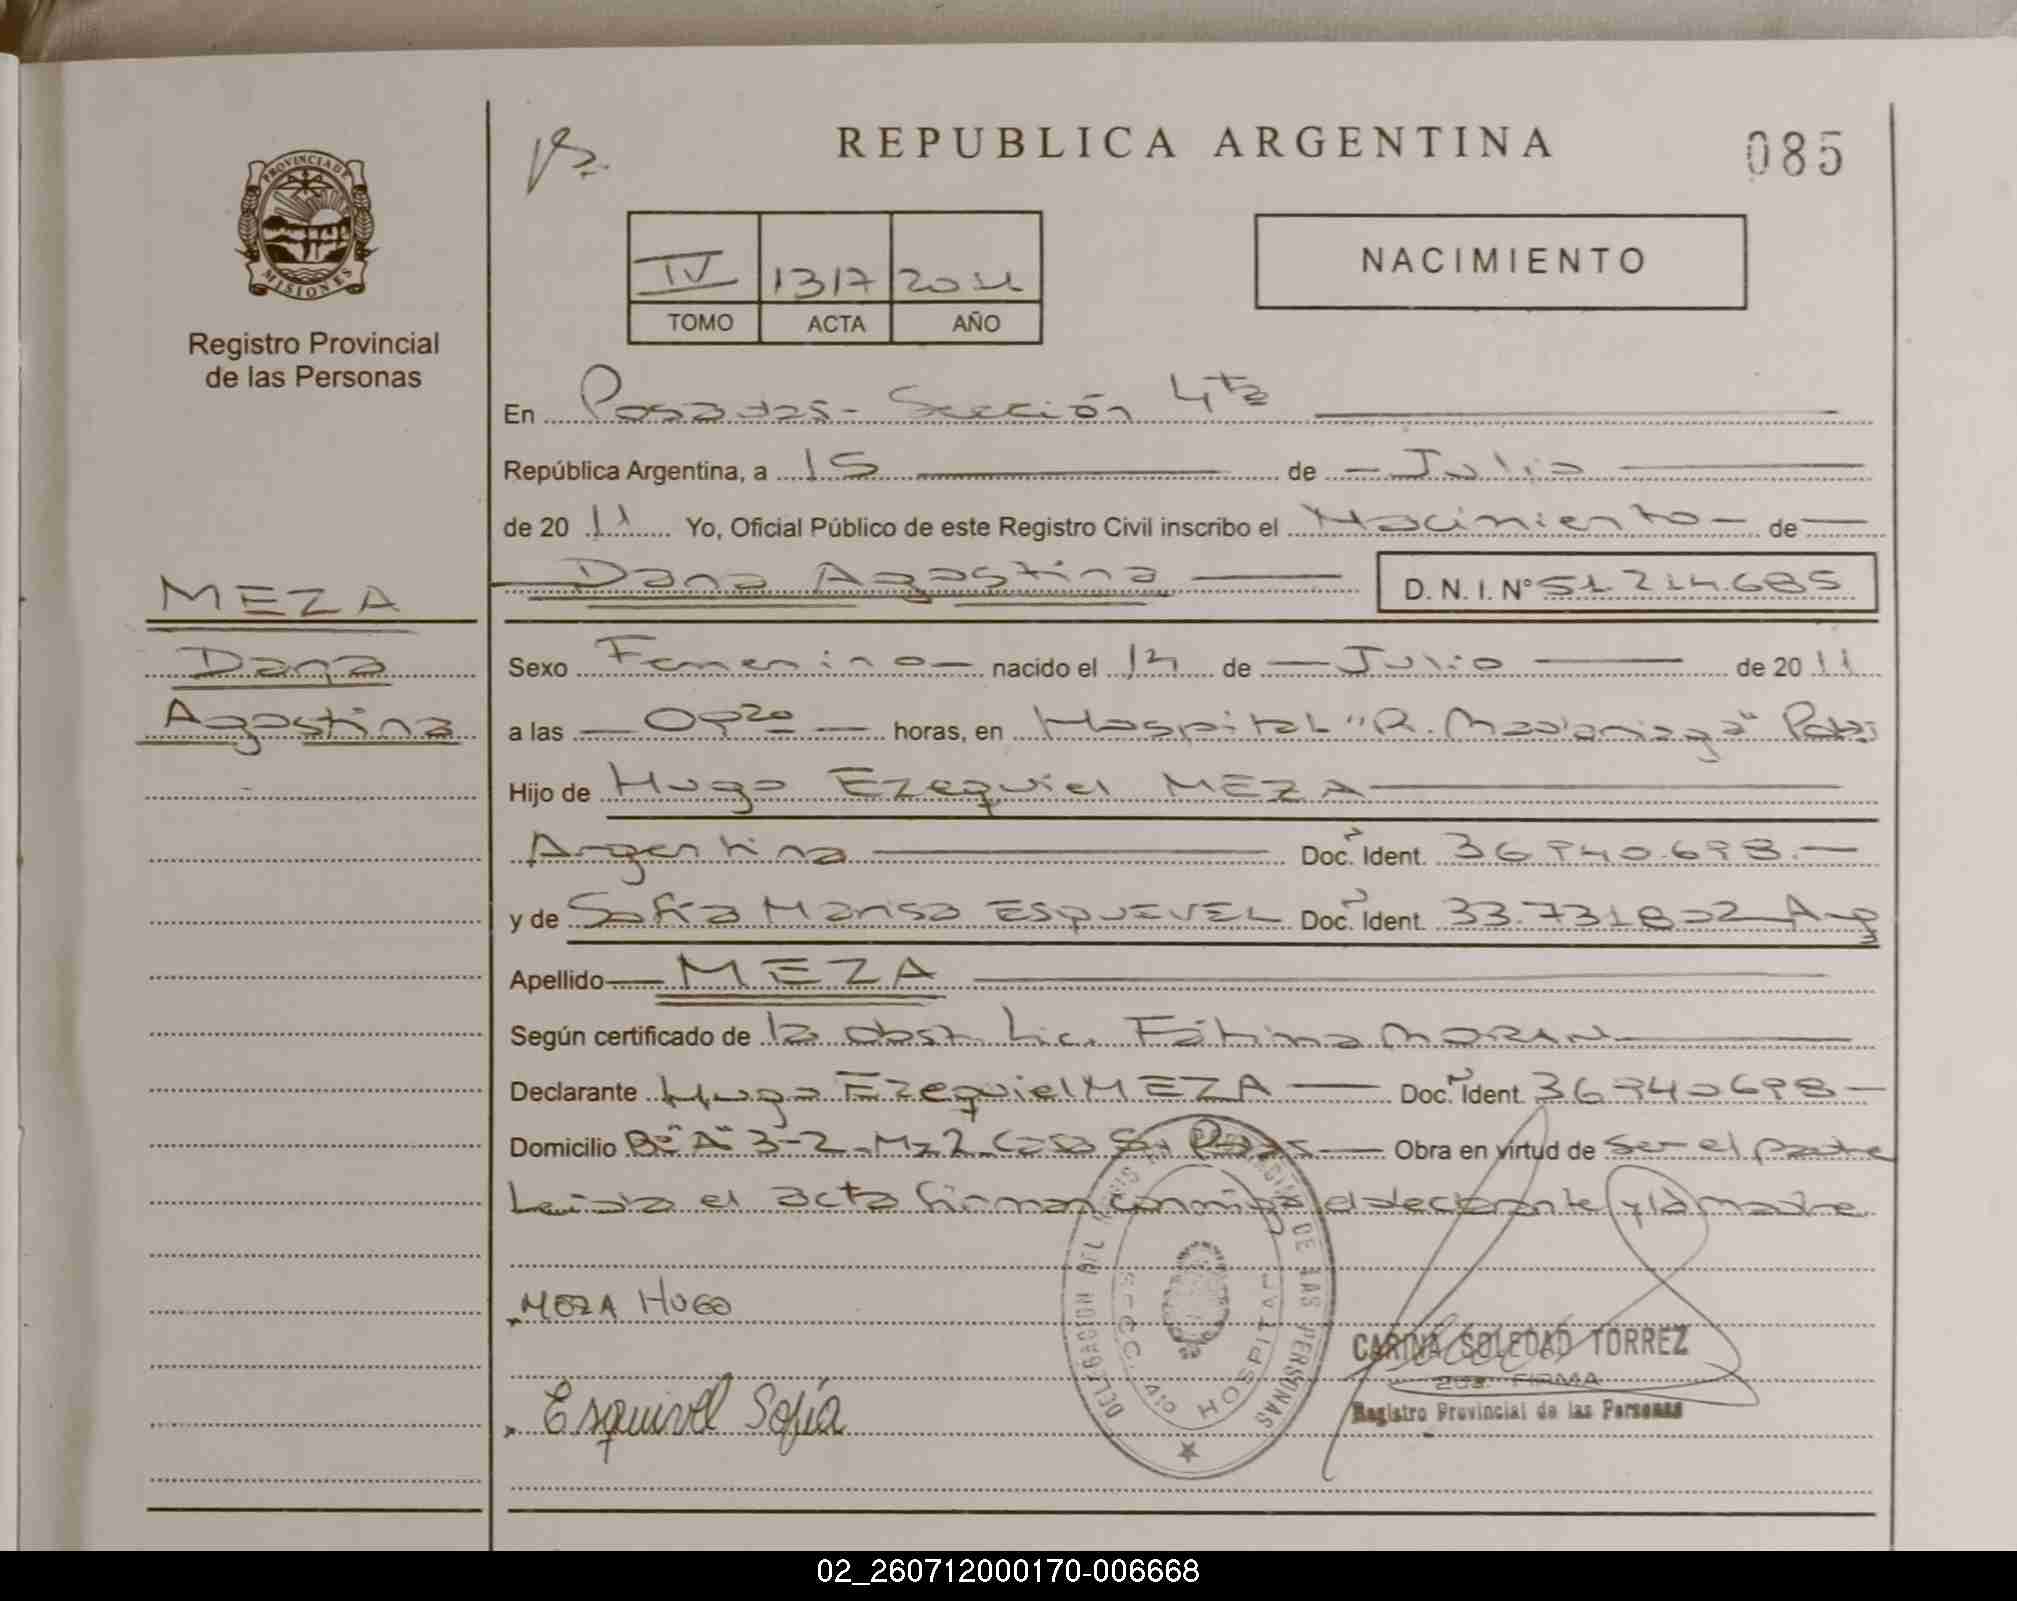 PROVINCIA DE
MISIONES
Registro Provincial
de las Personas
REPUBLICA ARGENTINA
085
NACIMIENTO
IV 1317 2011
TOMO ACTA AÑO
En Posadas - Sección 4ta
República Argentina, a 15 de Julio
de 20 11 Yo, Oficial Público de este Registro Civil inscribo el Nacimiento de
Dana Agostina D. N. I. Nº 51.214.685
MEZA
Dana
Agostina
Sexo Femenino nacido el 14 de Julio de 20 11
a las 09 20 horas, en Hospital "R. Madariaga"
Hijo de Hugo Ezequiel MEZA
Argentina Doc. Ident. 36.940.698.
y de Sofia Marisa Doc. Ident. 33.731802 Arg
Apellido MEZA
Según certificado de la obst. Lic. Fátima MORAN
Declarante Hugo Ezequiel MEZA Doc. Ident 36940698
Domicilio Bº "A" 3-2 - Mz 2 Casa Obra en virtud de ser el padre
Leida el acta firman conmigo el declarante y la madre
MEZA HUGO
Esquivel Sofía
SECC. 4ta HOSPITAL
CARINA SOLEDAD TORREZ
2da. FIRMA
Registro Provincial de las Personas
02_260712000170-006668